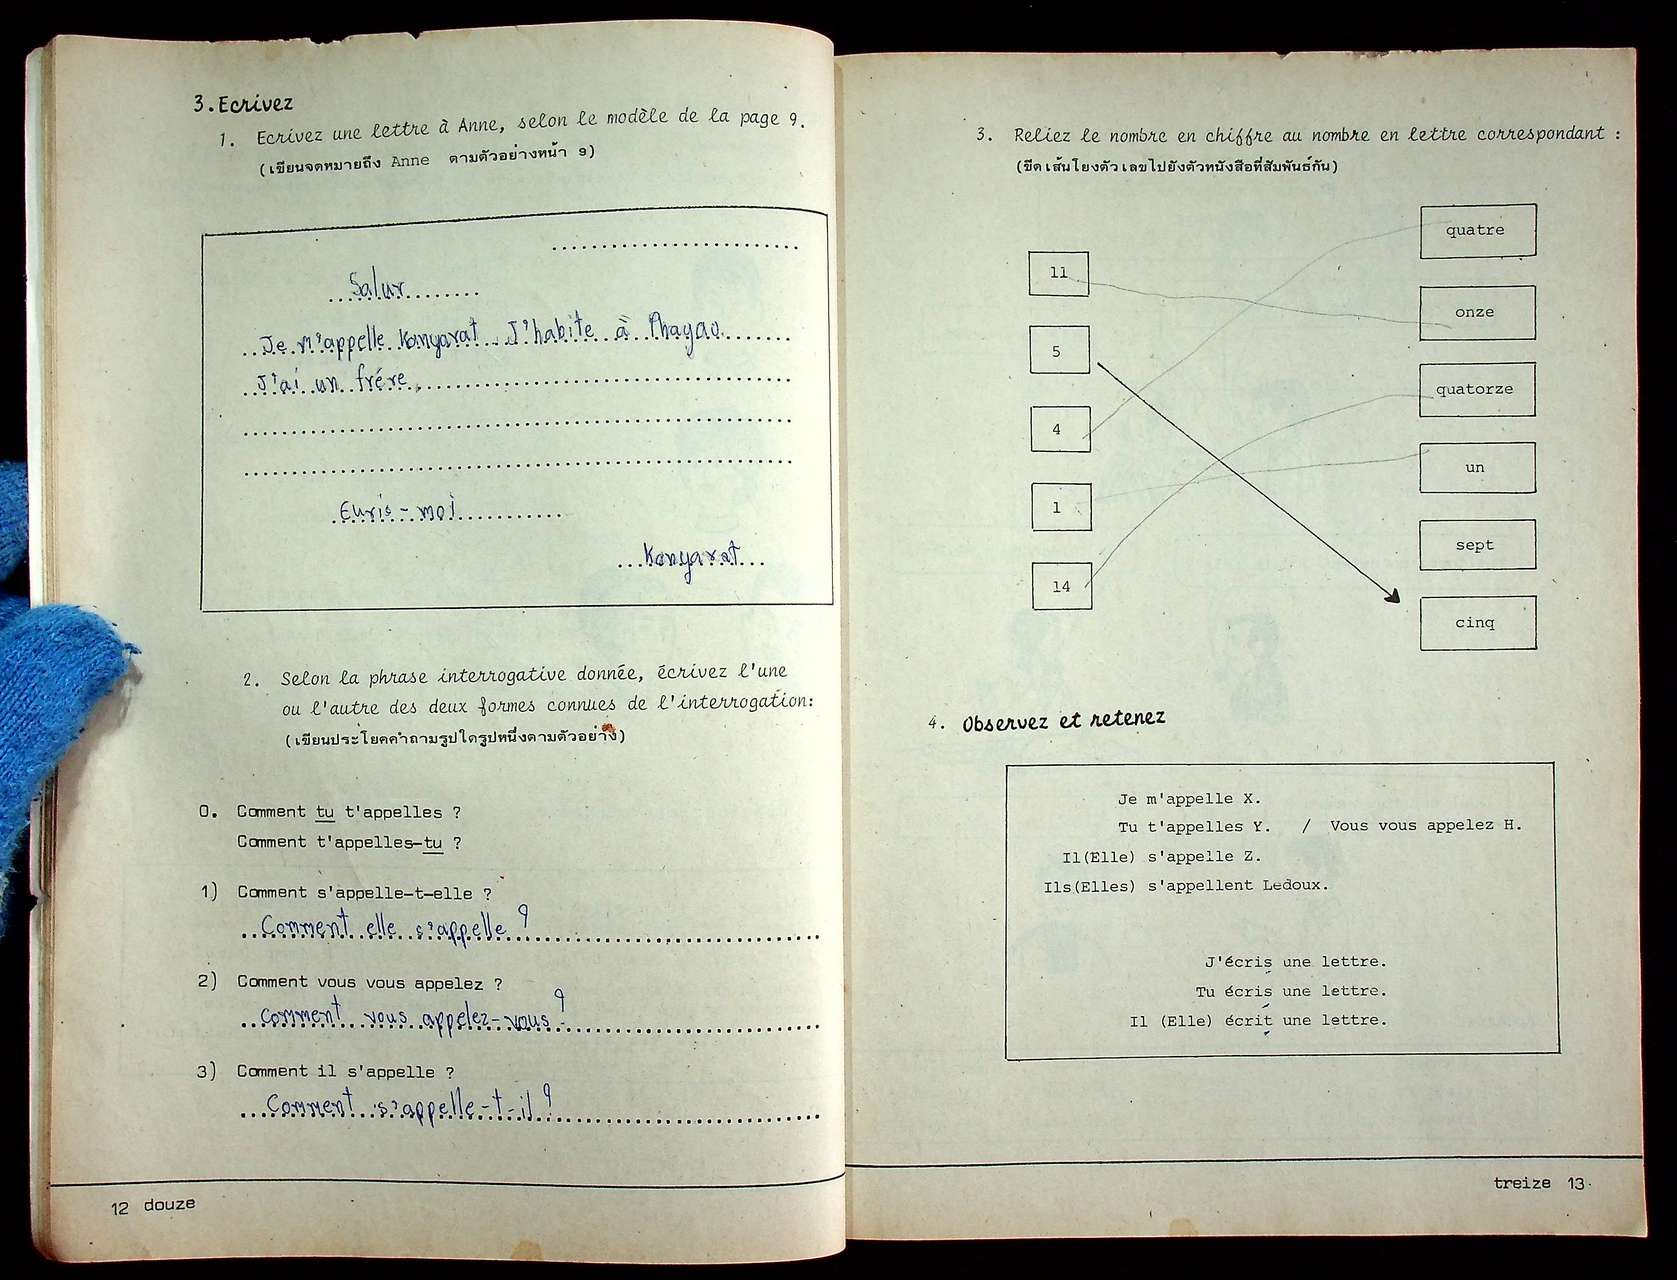 3. Ecrivez
1. Ecrivez une lettre à Anne, selon le modèle de la page 9.
(เขียนจดหมายถึง Anne ตามตัวอย่างหน้า ๑)
Salur
Je m'appelle Kanyarat. J'habite à Phayao.
J'ai un frére.
Euris-moi
Kanyarat
2. Selon la phrase interrogative donnée, écrivez l'une
ou l'autre des deux formes connues de l'interrogation:
(เขียนประโยคคำถามรูปใดรูปหนึ่งตามตัวอย่าง)
0. Comment tu t'appelles ?
Comment t'appelles-tu ?
1) Comment s'appelle-t-elle ?
Comment elle s'appelle ?
2) Comment vous vous appelez ?
Comment vous appelez-vous ?
3) Comment il s'appelle ?
Comment s'appelle-t-il ?
12 douze
3. Reliez le nombre en chiffre au nombre en lettre correspondant :
(ขีดเส้นโยงตัวเลขไปยังตัวหนังสือที่สัมพันธ์กัน)
11
5
4
1
14
quatre
onze
quatorze
un
sept
cinq
4. Observez et retenez
Je m'appelle X.
Tu t'appelles Y. / Vous vous appelez H.
Il(Elle) s'appelle Z.
Ils(Elles) s'appellent Ledoux.
J'écris une lettre.
Tu écris une lettre.
Il (Elle) écrit une lettre.
treize 13